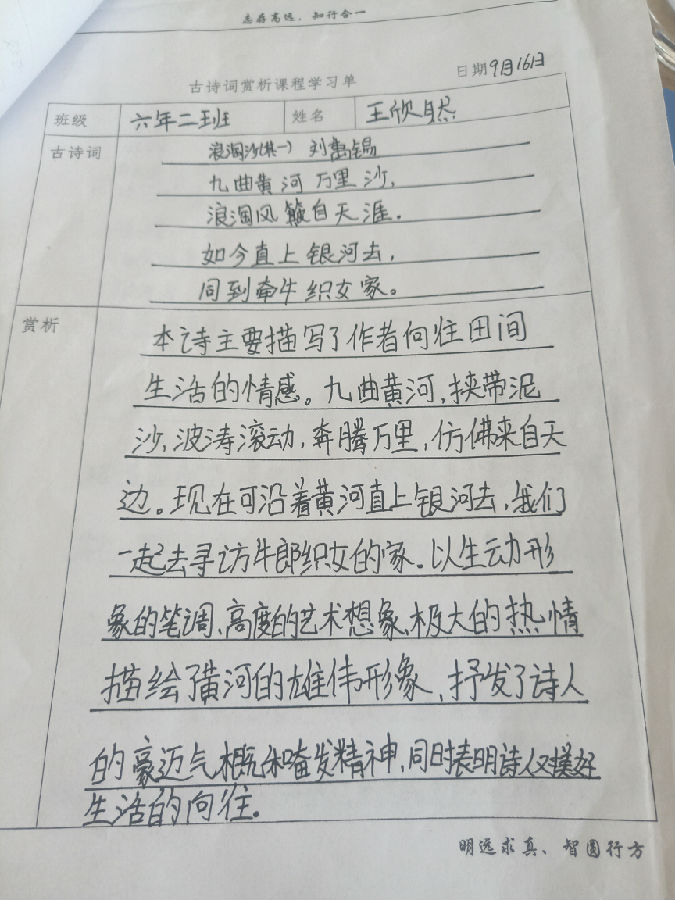 志存高远、知行合一
古诗词赏析课程学习单
日期9月16日
班级 六年二班 姓名 王欣自然
古诗词
浪淘沙(其一) 刘禹锡
九曲黄河万里沙,
浪淘风簸自天涯.
如今直上银河去,
同到牵牛织女家。
赏析
本诗主要描写了作者向往田间
生活的情感。九曲黄河,挟带泥
沙,波涛滚动,奔腾万里,仿佛来自天
边。现在可沿着黄河直上银河去,我们
一起去寻访牛郎织女的家.以生动形
象的笔调、高度的艺术想象、极大的热情
描绘了黄河的雄伟形象,抒发了诗人
的豪迈气概和奋发精神,同时表明诗人对美好
生活的向往。
明远求真、智圆行方